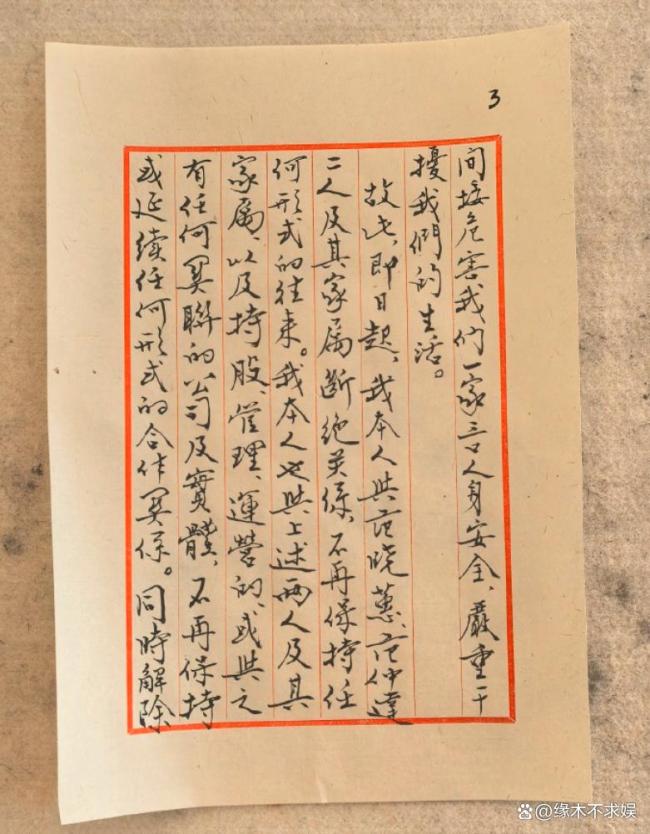 3
间接危害我们一家三口人身安全、嚴重干
擾我們的生活。
故此、即日起、我本人與范晓蕙、范仲達
二人及其家属断绝关係、不再保持任
何形式的往来。我本人也與上述两人及其
家属、以及持股、管理、運營的、或與之
有任何関聯的公司及實體、不再保持
或延续任何形式的合作関係。同時解除
@缘木不求娱